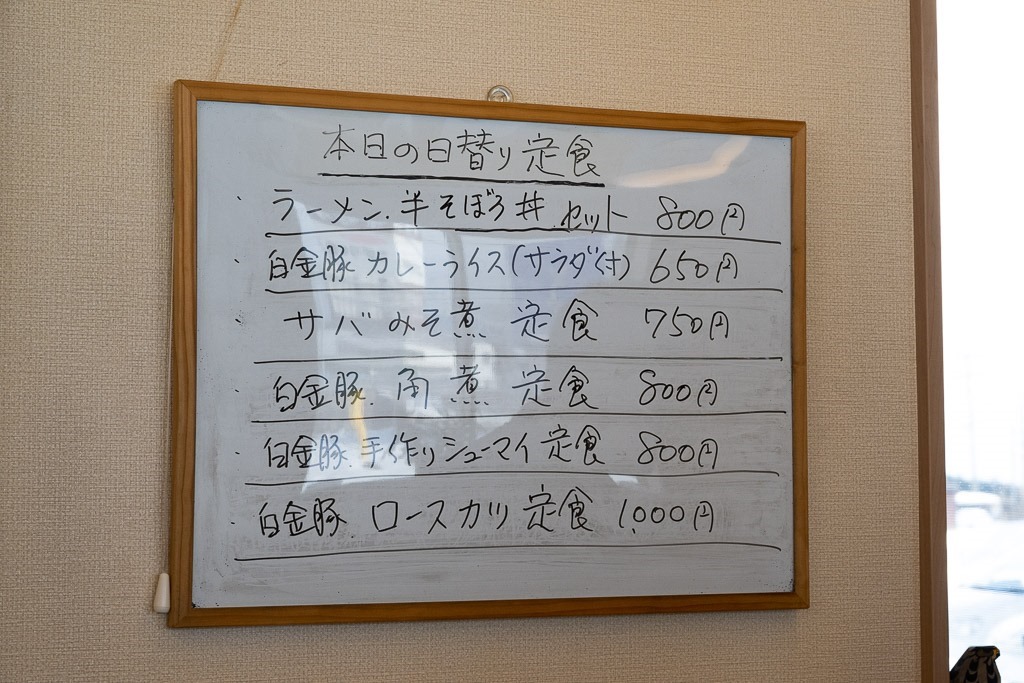 本日の日替り定食
・ラーメン.半そぼろ丼.セット 800円
・白金豚 カレーライス(サラダ付) 650円
・サバみそ煮 定食 750円
・白金豚.角煮 定食 800円
・白金豚.手作りシューマイ定食 800円
・白金豚.ロースカツ定食 1,000円